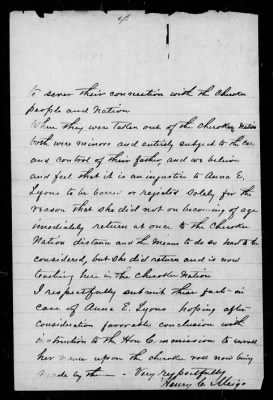 to sever their connection with the Cherokee
people and Nation
When they were taken out of the Cherokee Nation
both were minors and entirely subject to the care
and control of their father, and we believe
and feel that it is an injustice to Anna E.
Lyons to be barred or rejected solely for the
reason that she did not on becoming of age
imediately return at once to the Cherokee
Nation distance and the means to do so had to be
considered, but she did return and is now
teaching here in the Cherokee Nation
I respectfully submit these facts in
case of Anna E. Lyons hoping after
consideration favorable conclusion with
instruction to the Hon Commission to enroll
her name upon the cherokee roll now being
made by them - Very respectfully
Henry C Meigs